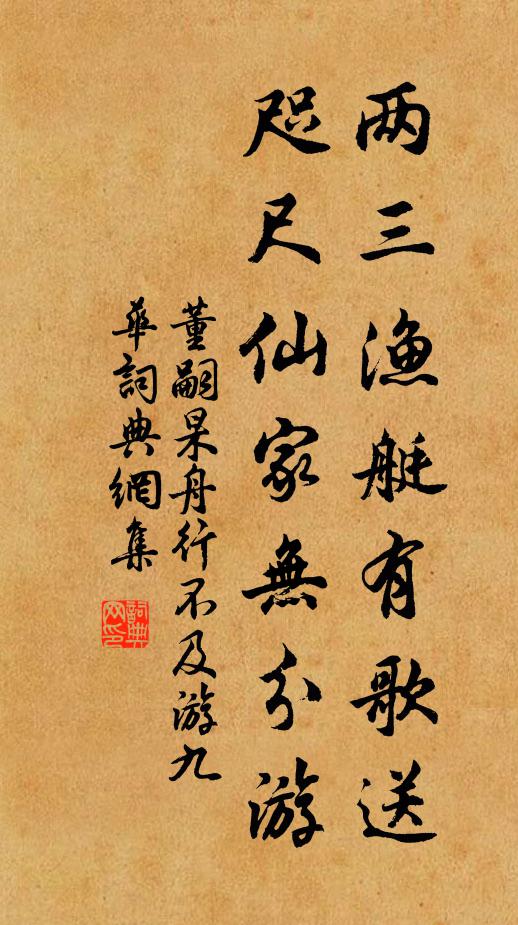 两三渔艇有歌送
咫尺仙家無分游
董嗣杲舟行不及游九
華詞典網集
詞典
网印